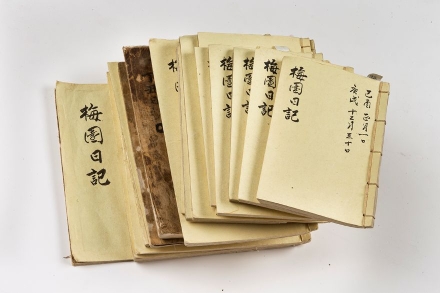 梅園日記
梅
梅園日記
梅園日記
梅園日記
梅園日記
己酉 正月一日
庚戌 十二月三十日